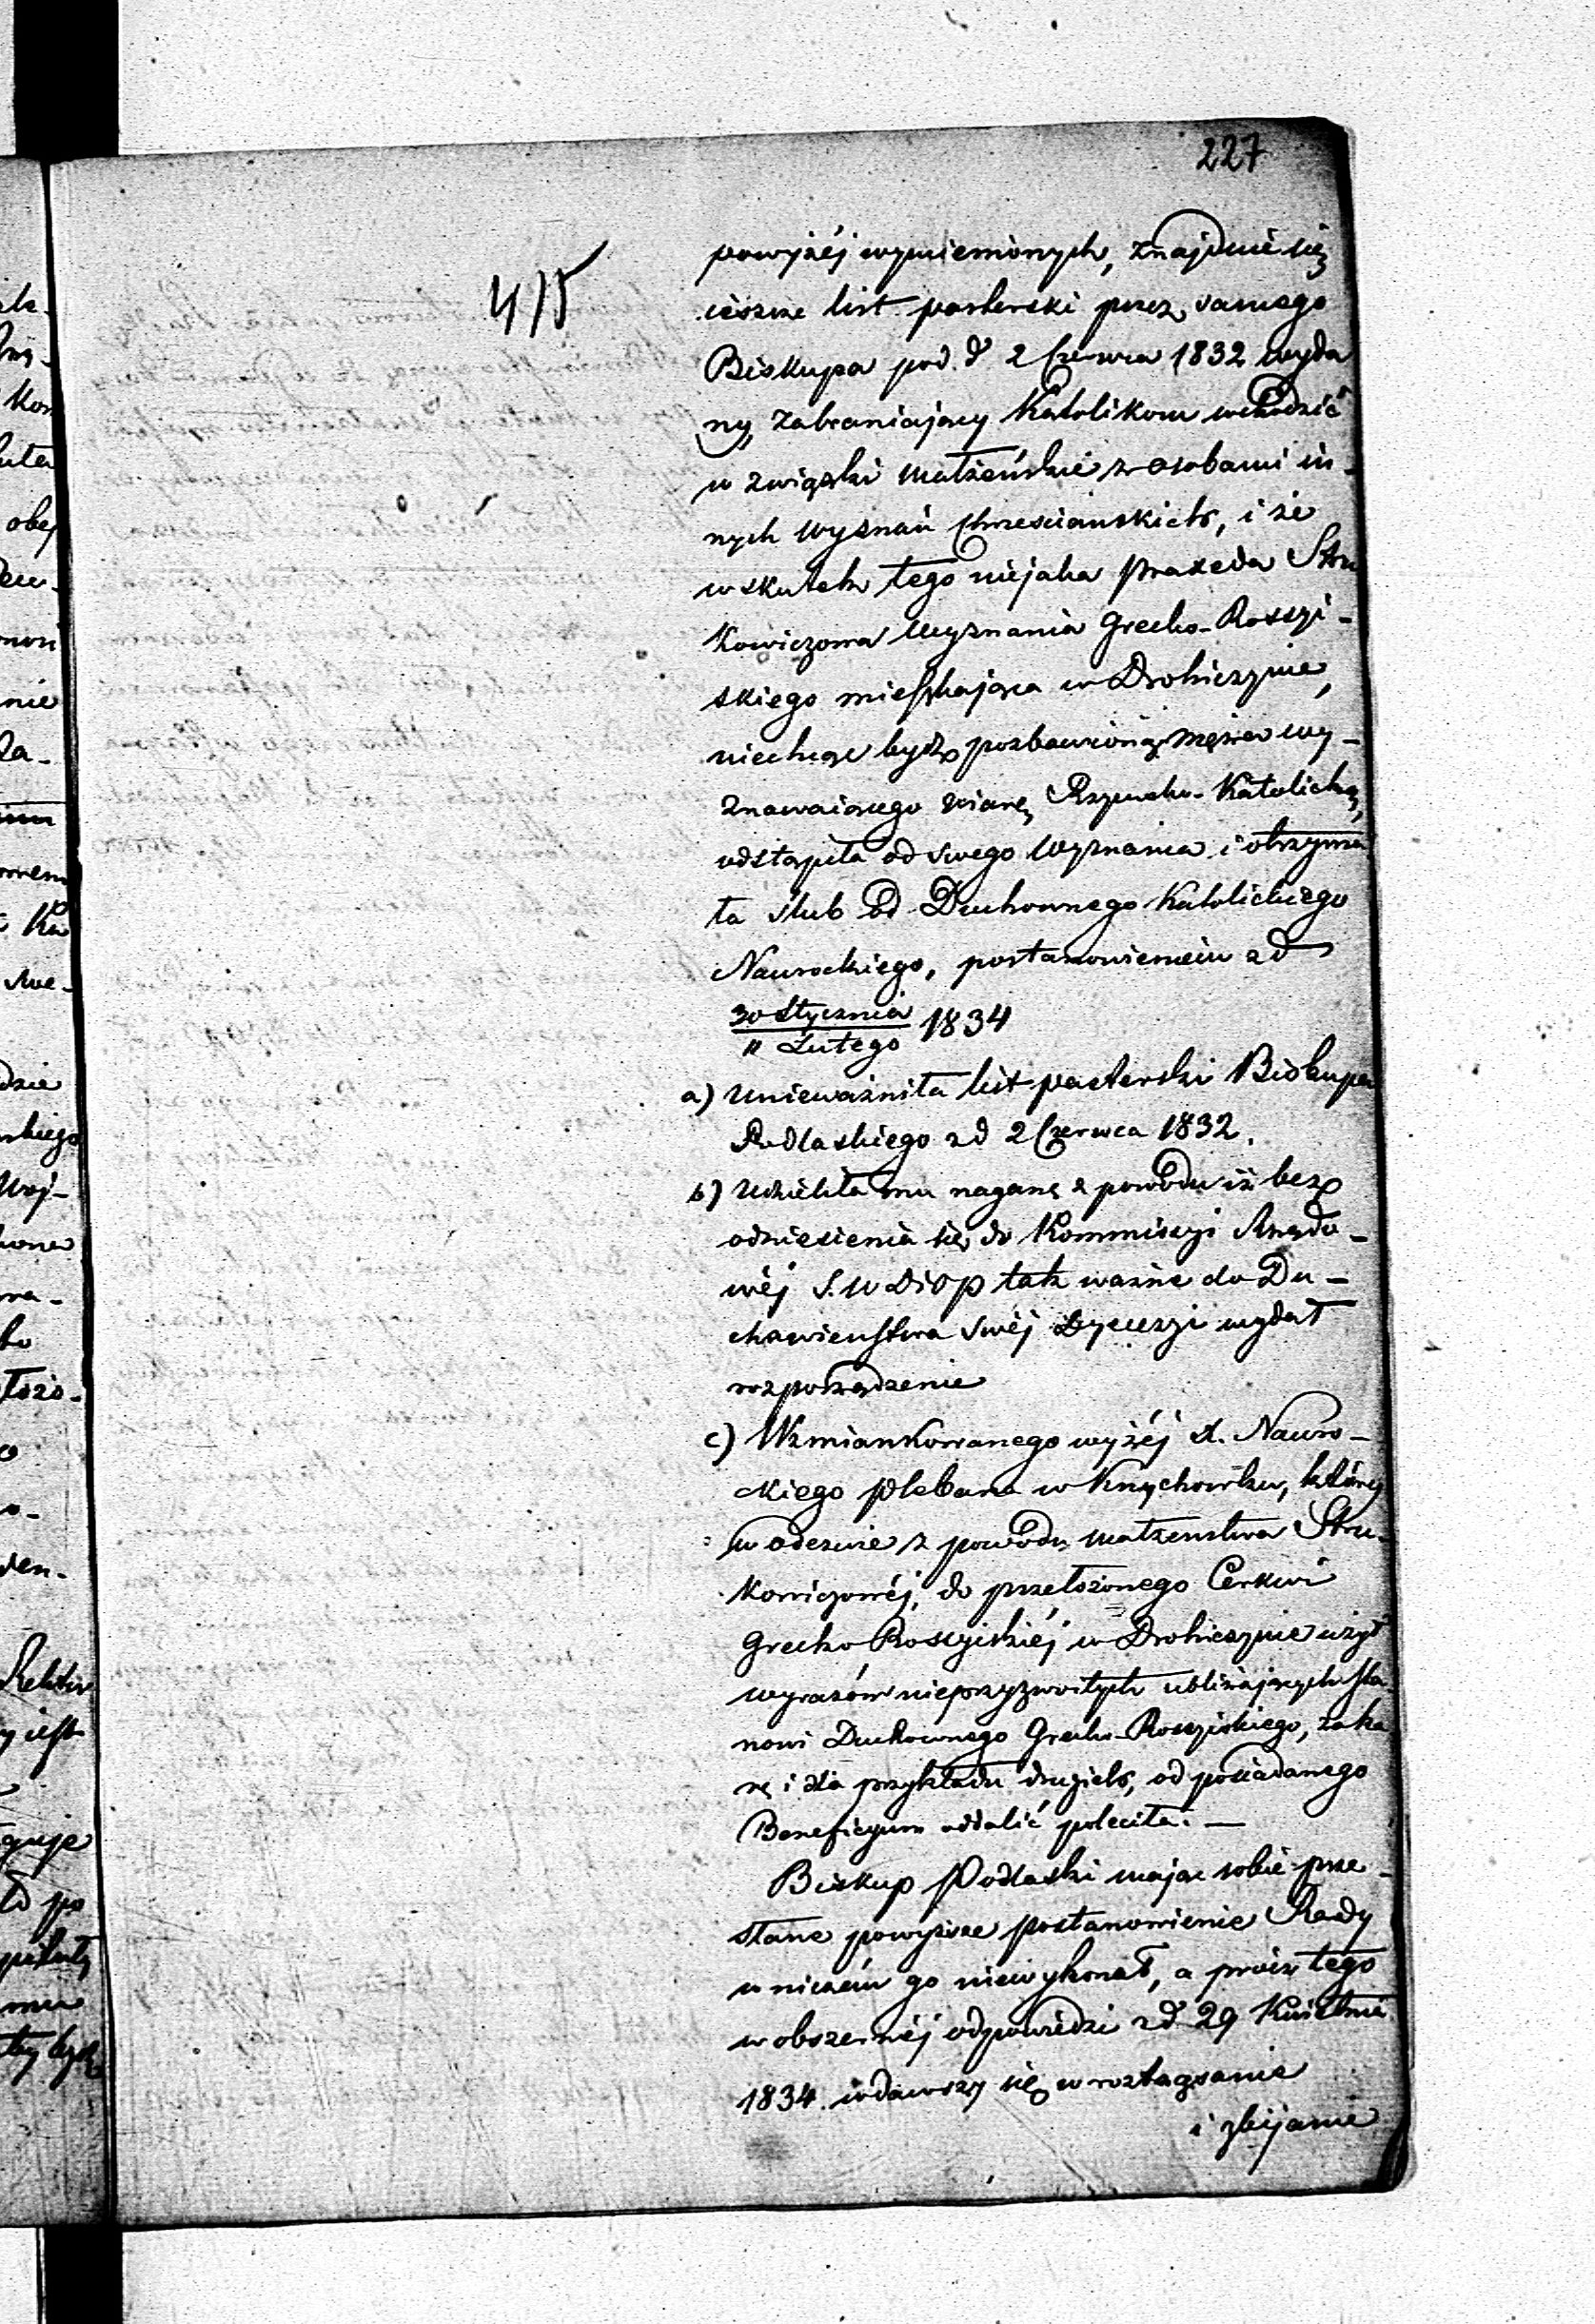 227
475
powyżéj wymienionych, znajduie się
ieszcze list pasterski przez samego
Biskupa pod. d 2 Czerwca 1832 wyda
ny, zabraniaiący Katolikom wchodzić
w związki małżeńskie z osobami in-
nych wyznań Chrześciańskich, i że
w skutek tego niejaka Praxeda Stru
kowiczowa wyznania Grecko-Rossyi-
skiego mieszkająca w Drohiczynie,
niechcąc bydź pozbawioną męża wy-
znawaiącego wiarę Rzymsko-Katolicką,
odstąpiła od swego wyznania i otrzyma
ła ślub od Duchownego Katolickiego
Nawrockiego, postanowieniem z d
30 Stycznia
11 Lutego 1834
a) Unieważniła list pasterski Biskupa
Podlaskiego z d 2 Czerwca 1832.
b) Udzieliła mu naganę z powodu iż bez
odniesienia się do Kommissyi Rządo-
wéj S. W D i O P tak ważne do Du-
chowieństwa swéj Dyecezyi wydał
rozporządzenie
c) Wzmiankowanego wyżéj X. Nawro-
ckiego Plebana w Knychowku, który
w odezwie z powodu małżenstwa Stru-
kowiczowéj, do przełożonego Cerkwi
Grecko Rossyiskiéj w Drohiczynie użył
wyrazów nieprzyzwoitych ubliżaiących sta-
nowi Duchownego Grecko-Rossyiskiego, za ka
rę i dla przykładu drugich, od posiadanego
Beneficyum oddalić poleciła. —
Biskup Podlaski mając sobie prze-
słane powyższe postanowienie Rady
w niczém go niewykonał, a prócz tego
w obszernéj odpowiedzi z d 29 Kwietnia
1834. wdawszy się w roztrząsanie
i zbijanie